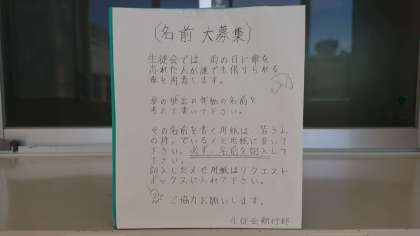 (名前 大募集)
生徒会では 雨の日に傘を
忘れた人が誰でも借りられる
傘を用意します。
傘の貸出の
の名前を
考えて書いて下さい。
その名前を書く用紙は 皆さん
の持っているメモ用紙に書いて
下さい。必ず、名前を記入して
下さい。
記入したメモ用紙はリクエスト
ボックスに入れて下さい。
ご協力お願いします。
生徒会執行部